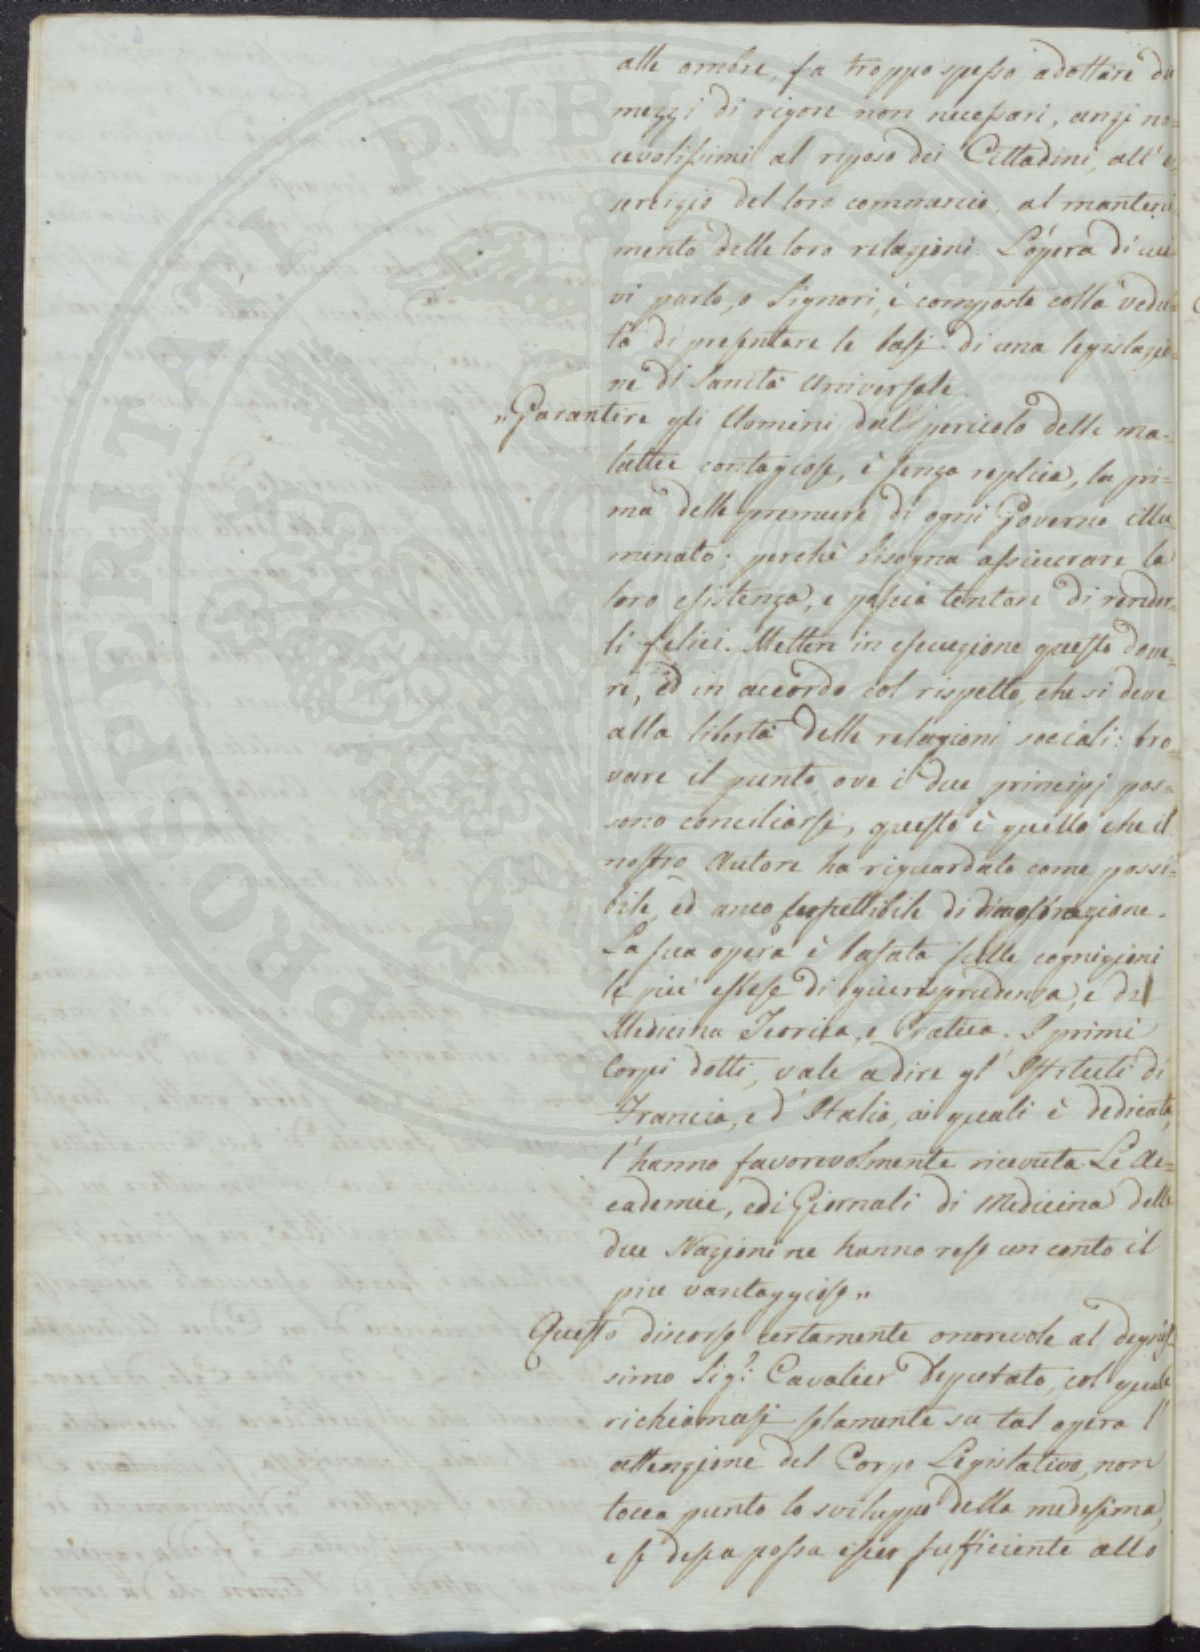 alle ombre, fa troppo spesso adottare de
mezzi di rigore non necessari, anzi no=
cevolissimi al riposo dei Cittadini, all' e
sercizio del loro commercio, al manteni
mento delle loro relazioni. L'opera di cui
vi parlo, o Signori, è composta colla vedu=
ta di presentare le basi di una legislazio=
ne di Sanità Universale.
"Garantire gli Uomini dal pericolo delle ma-
lattie contagiose, è senza replica, la pri=
ma delle premure di ogni Governo illu
minato; perchè bisogna assicurare la
loro esistenza, e poscia tentare di render=
li felici. Mettere in esecuzione questo dove=
re, ed in accordo col rispetto, che si deve
alla libertà delle relazioni sociali: tro
vare il punto ove i due principj pos=
sono conciliarsi, questo è quello che il
nostro Autore ha riguardato come possi=
bile, ed anco suscettibile di dimostrazione.
La sua opera è basata sulle cognizioni
le più estese di giurisprudenza, e di
Medicina Teorica, e Pratica. I primi
Corpi dotti, vale a dire gl' Istituti di
Francia, e d' Italia, ai quali è dedicata,
l' hanno favorevolmente ricevuta. Le Ac=
cademie, ed i Giornali di Medicina delle
due Nazioni ne hanno reso un conto il
piu vantaggioso"
Questo discorso certamente onorevole al degnis=
simo Sig.r Cavalier Deputato, col quale
richiamasi solamente su tal opera l'
attenzione del Corpo Legislativo, non
tocca punto lo sviluppo della medesima,
e se dessa possa esser sufficiente allo
PROSPERITATI PUBLICAE